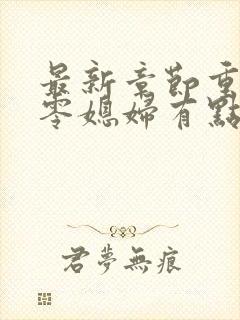 最新章節重
零媳婦有點
君夢無痕